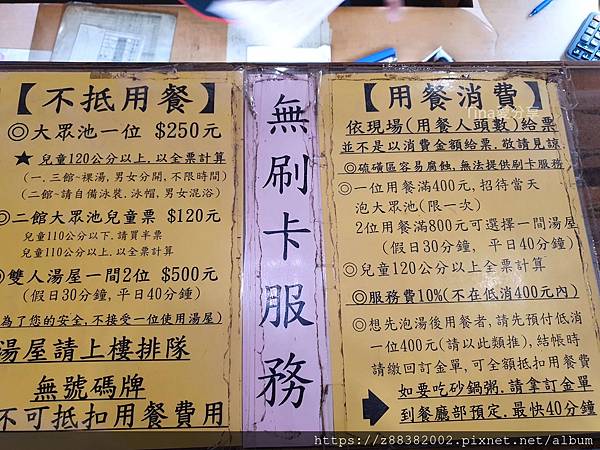 【不抵用餐】
◎大眾池一位 $250元
★ 兒童120公分以上.以全票計算
(一.三館~裸湯,男女分開,不限時間)
(二館~請自備泳裝.泳帽,男女混浴)
◎二館大眾池兒童票 $120元
兒童110公分以下.請買半票
兒童110公分以上.以全票計算
◎雙人湯屋一間2位 $500元
(假日30分鐘,平日40分鐘)
為了您的安全,不接受一位使用湯屋)
湯屋請上樓排隊
無號碼牌
不可抵扣用餐費用
無刷卡服務
【用餐消費】
依現場(用餐人頭數)給票
並不是以消費金額給票.敬請見諒
◎硫磺區容易腐蝕,無法提供刷卡服務
◎一位用餐滿400元,招待當天
泡大眾池(限一次)
2位用餐滿800元可選擇一間湯屋
(假日30分鐘, 平日40分鐘)
◎兒童120公分以上全票計算
◎服務費10%(不在低消400元內)
◎想先泡湯後用餐者,請先預付低消
一位400元(請以此類推),結帳時
請繳回訂金單,可全額抵扣用餐費
如要吃砂鍋粥.請拿訂金單
到餐廳部預定.最快40分鐘
https://z88382002.pixnet.net/album